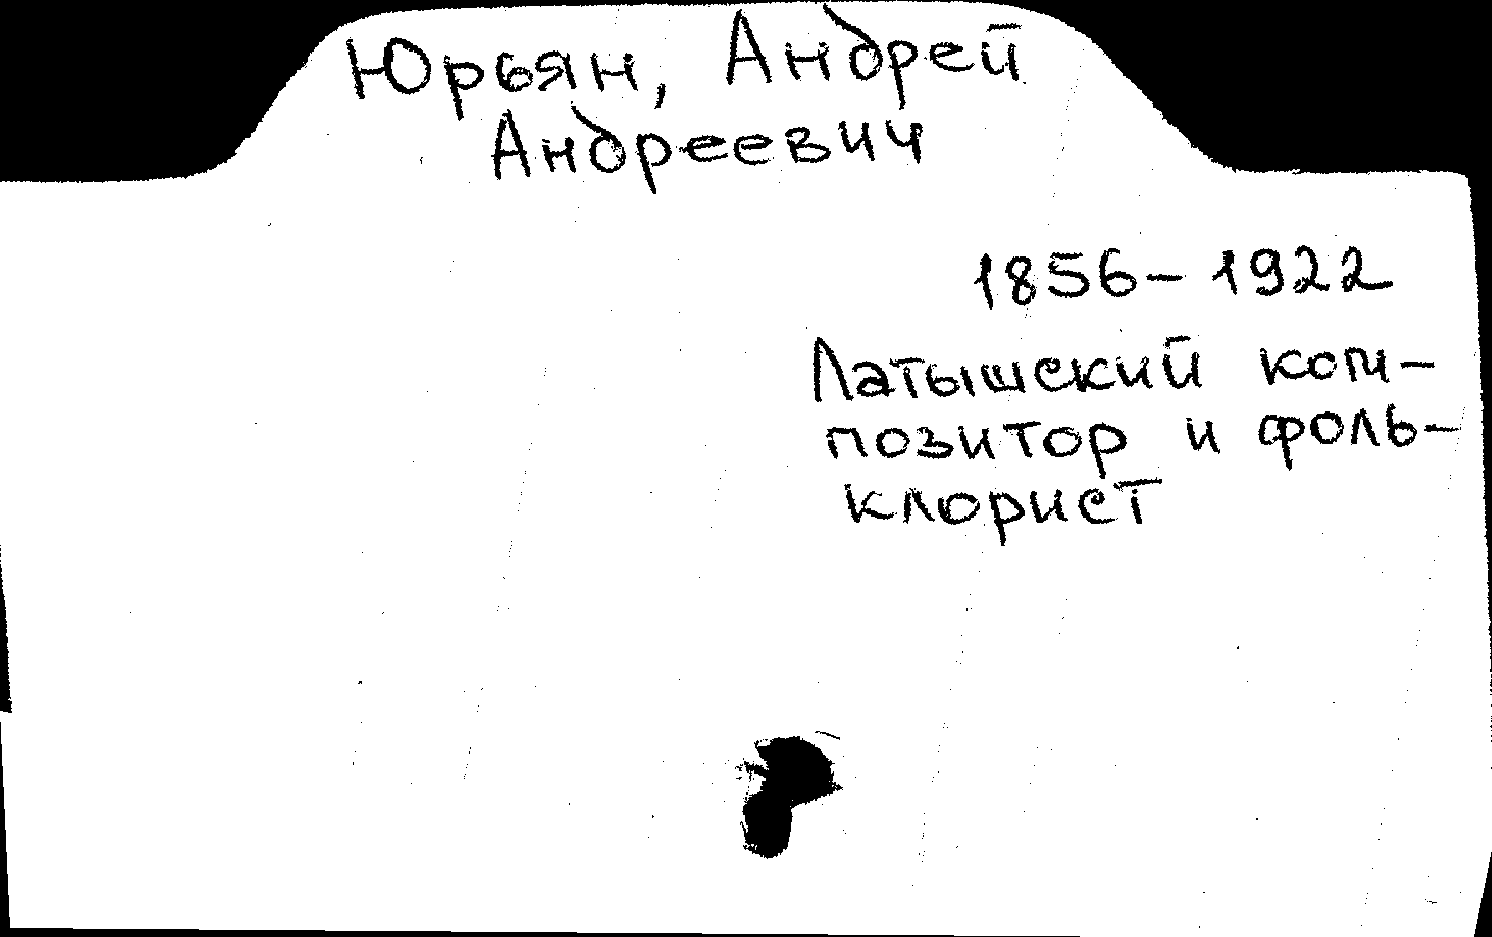 Юрьян, Андрей
Андреевич
1856-1922
Латышский ком-
позитор и фоль-
клорист